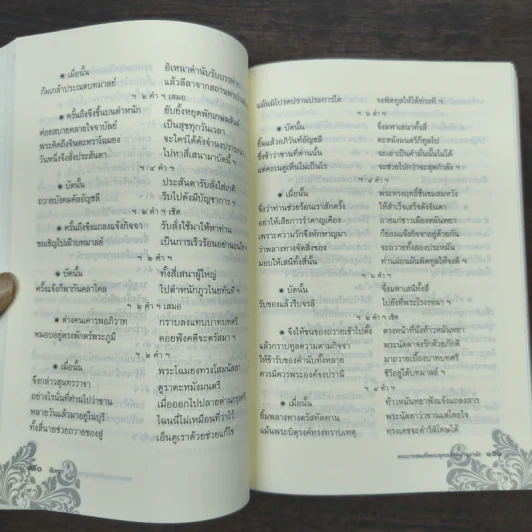 ๏ เมื่อนั้น อิเหนาคำนับรับบรรหาร
ก้มเกล้าประณตบทมาลย์ แล้วลีลาจากสถาน
ฯ ๒ คำ ฯ เสมอ
๏ ครั้นถึงจึงขึ้นบนตำหนัก ยับยั้งหยุดพัก
ค่อยสบายคลายใจจาบัลย์ เป็นสุขทุกวันเวลา
พระคิดถึงจินตะหราโฉมยง จะใคร่ได้
วันหนึ่งจึงสั่งประสันตา ไปหาสี่เสนามาบัดนี้ ฯ
ฯ ๔ คำ ฯ
๏ บัดนั้น ประสันตารับสั่งใส่เกศี
ถวายบังคมคัลอัญชลี รีบไปดังมีบัญชาการ ฯ
ฯ ๒ คำ ฯ เชิด
๏ ครั้นถึงจึงแถลงแจ้งกิจจา รับสั่งใช้มาให้หาท่าน
ขอเชิญไปเฝ้าบทมาลย์ เป็นการเร็วร้อนอย่านอนใจ
ฯ ๒ คำ ฯ
๏ บัดนั้น ทั้งสี่เสนาผู้ใหญ่
ครั้งแจ้งก็พากันคลาไคล ไปตำหนักภูวไนยทันที ฯ
ฯ ๒ คำ ฯ เสมอ
๏ ต่างคนเคารพอภิวาท กราบลงแทบบาทบทศรี
หมอบอยู่ตรงพักตร์พระภูมี คอยฟังคดีจะตรัสมา ฯ
ฯ ๒ คำ ฯ
๏ เมื่อนั้น พระโฉมยงทรงโสมนัสสา
จึงกล่าวสุนทรวาจา ดูราดะหมังมนตรี
อย่างไรนั่นที่ท่านไปว่าขาน เมื่อออกไปปลายด่าน
หลายวันแล้วมาอยู่ในบุรี โฉนนี้ไม่เหมือนที่ว่าไว้
ทั้งสี่นายช่วยถวายของสู่ เอ็นดูเราด้วยช่วยแก้ไข
๑๕๐ อิเหนา
แม้นมิโปรดปรานประการใด จงพิดทูลให้ได้ท่วงที ฯ
๏ บัดนั้น จึ่งมหาเสนาทั้งสี่
ยิ้มแล้วอภิวันท์อัญชลี ดะหมังมนตรีก็ทูลไป
ซึ่งข้าว่าขานที่ด่านนั้น จะเอาเป็นคำมั่นนั้นไม่ได้
แต่คะเนดูเห็นไม่เป็นไร จะช่วยไปกว่าจะสุดกำลัง ฯ
ฯ ๔ คำ ฯ
๏ เมื่อนั้น พระทรงฤทธิ์ชื่นชมสมหวัง
จึงว่าท่านช่วยร้อนเราสักครั้ง ให้สำเร็จเสร็จดังจินดา
อย่าให้เสียการรำคาญเคือง อายแก่ชาวเมืองหมันหยา
เพราะความรักจึงหักหาญมา ก็ย่อมแจ้งกิจจาอยู่ด้วยกัน
ว่าพลางทางจัดสิ่งของ จะถวายทั้งสองประหมัน
มอบให้เสนีทั้งสี่นั้น ท่านผ่อนผันพิดทูลให้จงดี ฯ
ฯ ๖ คำ ฯ
๏ บัดนั้น จึ่งมหาเสนีทั้งสี่
รับของแล้วรีบจรลี ไปยังที่พระโรงรจนา ฯ
ฯ ๒ คำ ฯ เชิด
๏ จึงให้ขนของถวายเข้าไปตั้ง ตรงหน้าที่นั่งท้าวหมันหยา
แล้วกราบทูลความตามกิจจา พระนัดดาจงรักด้วยภักดี
ให้ข้ารับของคำนับทั้งหลาย มาถวายเบื้องบาทบทศรี
ควรมิควรพระองค์จงปรานี ชีวีอยู่ใต้บทมาลย์ ฯ
ฯ ๔ คำ ฯ
๏ เมื่อนั้น ท้าวหมันหยาฟังแจ้งแถลงสาร
ยิ้มพลางทางตรัสทัดทาน พระนัดดาว่าขานแต่โดยใจ
แม้นพระบิตุรงค์ทรงทราบเหตุ ทรงเดชจะดำริติโทษได้